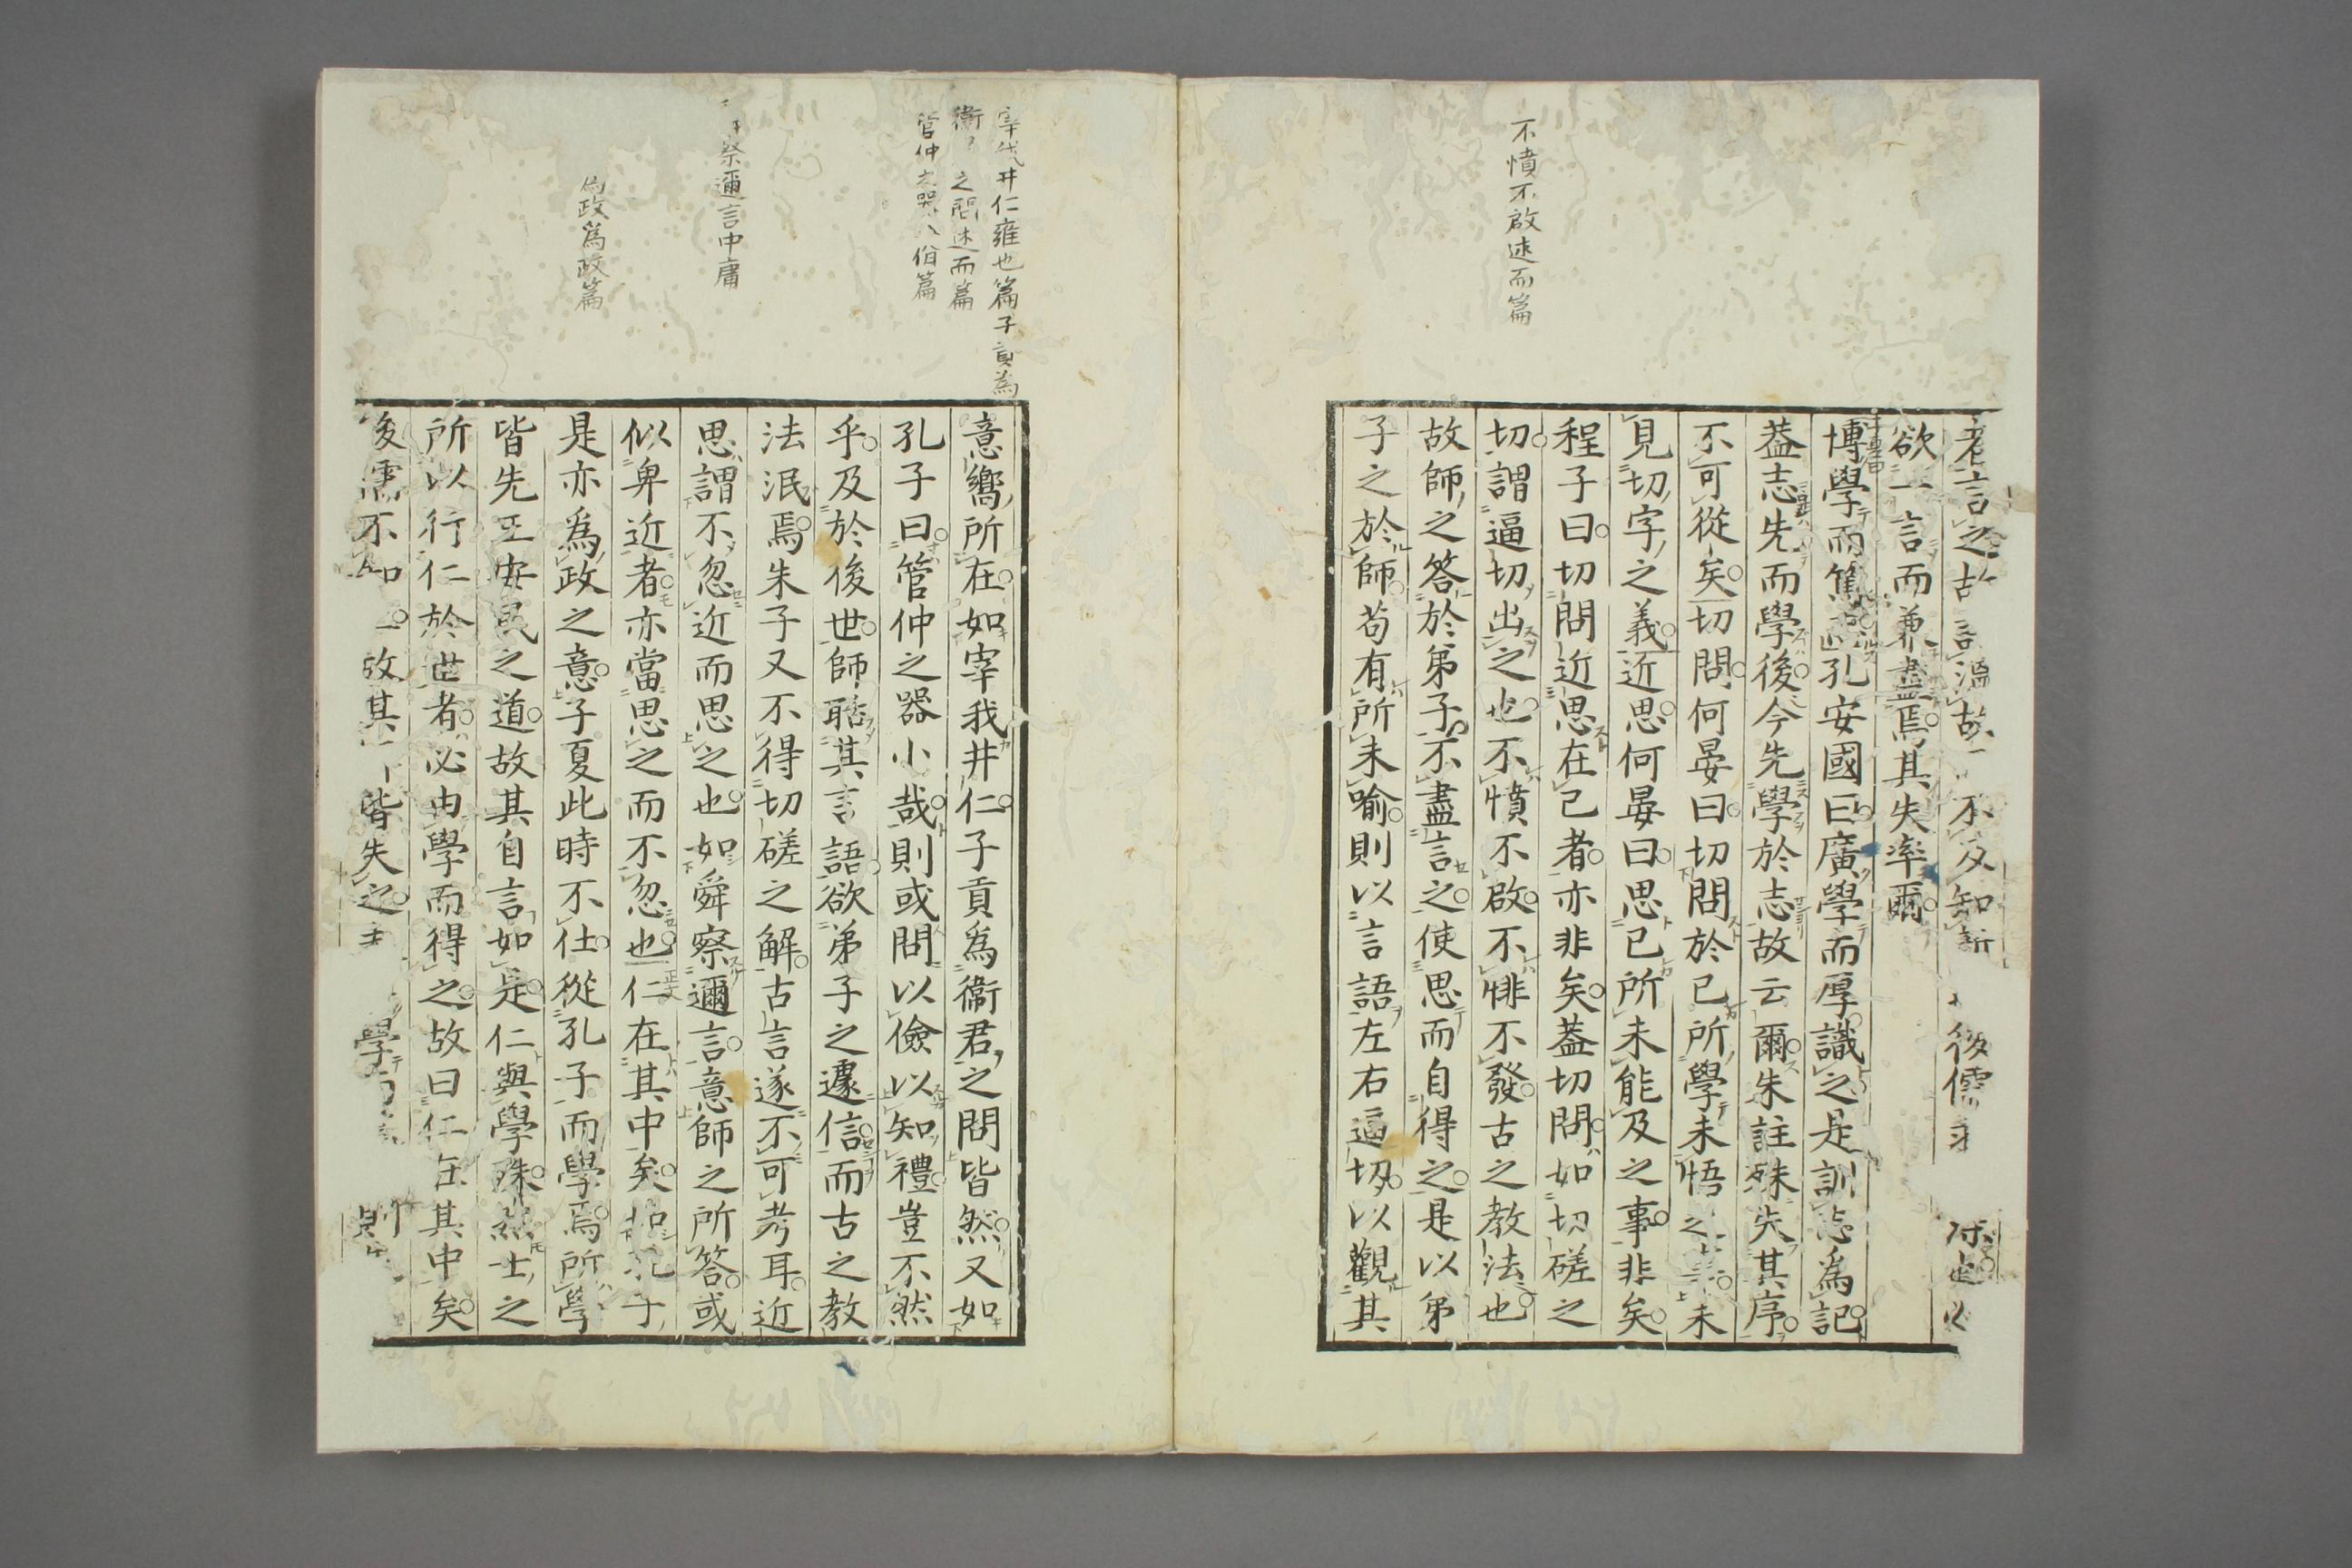 不憤不啟述而篇
老言之故 溫故 不及知新 後儒
欲一言而兼盡焉其失率爾
博學而篤志孔安國曰廣學而厚識之是訓志為記
葢志先而學後今先學於志故云爾朱註殊失其序
不可從矣切問何晏曰切問於已所學未悟之事未
見切字之義近思何晏曰思已所未能及之事非矣
程子曰切問近思在己者亦非矣葢切問如切磋之
切謂逼切出之也不憤不啟不悱不發古之教法也
故師之答於弟子不盡言之使思而自得之是以弟
子之於師苟有所未喻則以言語左右逼切以觀其
宰我井仁雍也篇子貢為
衛 之問述而篇
管仲之器八佾篇
察邇言中庸
為政為政篇
意嚮所在如宰我井仁子貢為衞君之問皆然又如
孔子曰管仲之器小哉則或問以儉以知禮豈不然
乎及於後世師聒其言語欲弟子之遽信而古之教
法泯焉朱子又不得切磋之解古言遂不可考耳近
思謂不忽近而思之也如舜察邇言意師之所答或
似卑近者亦當思之而不忽也仁在其中矣如孔子
是亦為政之意子夏此時不仕從孔子而學焉所學
皆先王安民之道故其自言如是仁與學殊然士之
所以行仁於世者必由學而得之故曰仁在其中矣
後儒不知 故其 皆失之 學 則